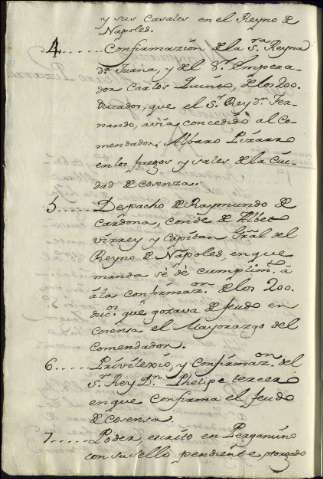 y sus Casales en el Reyno de
Napoles.
4..... Confirmazión de la S.ra Reyna
D.a Juana, y del S.r Empera
dor Carlos Quinto, de los 200.
Ducados, que el S.r Rey D.n Fer-
nando, avia concedido al Co-
mendador, Alvaro Pizarr
en los fuegos y sales de la Ciu-
dad de Cosenza.
5..... Despacho de Raymundo de
Cardona, Conde de
virrey y Capitan Gral del
Reyno de Napoles, en que
manda se de cumplim.to a
a las confirmaz.on de los 200
duc.os que gozava de feudo en
Cosensa el Mayorazgo del
Comendador.
6..... Privilexio, y Confirmaz.on del
S.r Rey D.n Phelipe tercero
en que confirma el feudo
de Cosensa.
7..... Poder escrito en Pergamino
con su sello pendiente otorgado